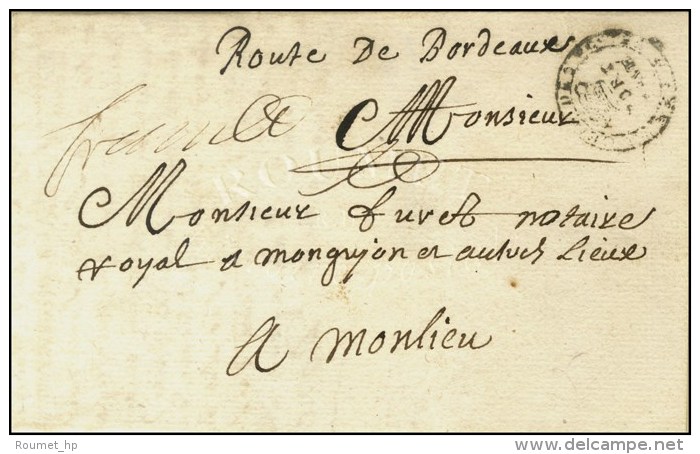 Route De Bordeaux
Monsieur
Monsieur furet notaire
royal a monguyon et autres lieux
A monlieu
Roumet_hp
www.delcampe.net